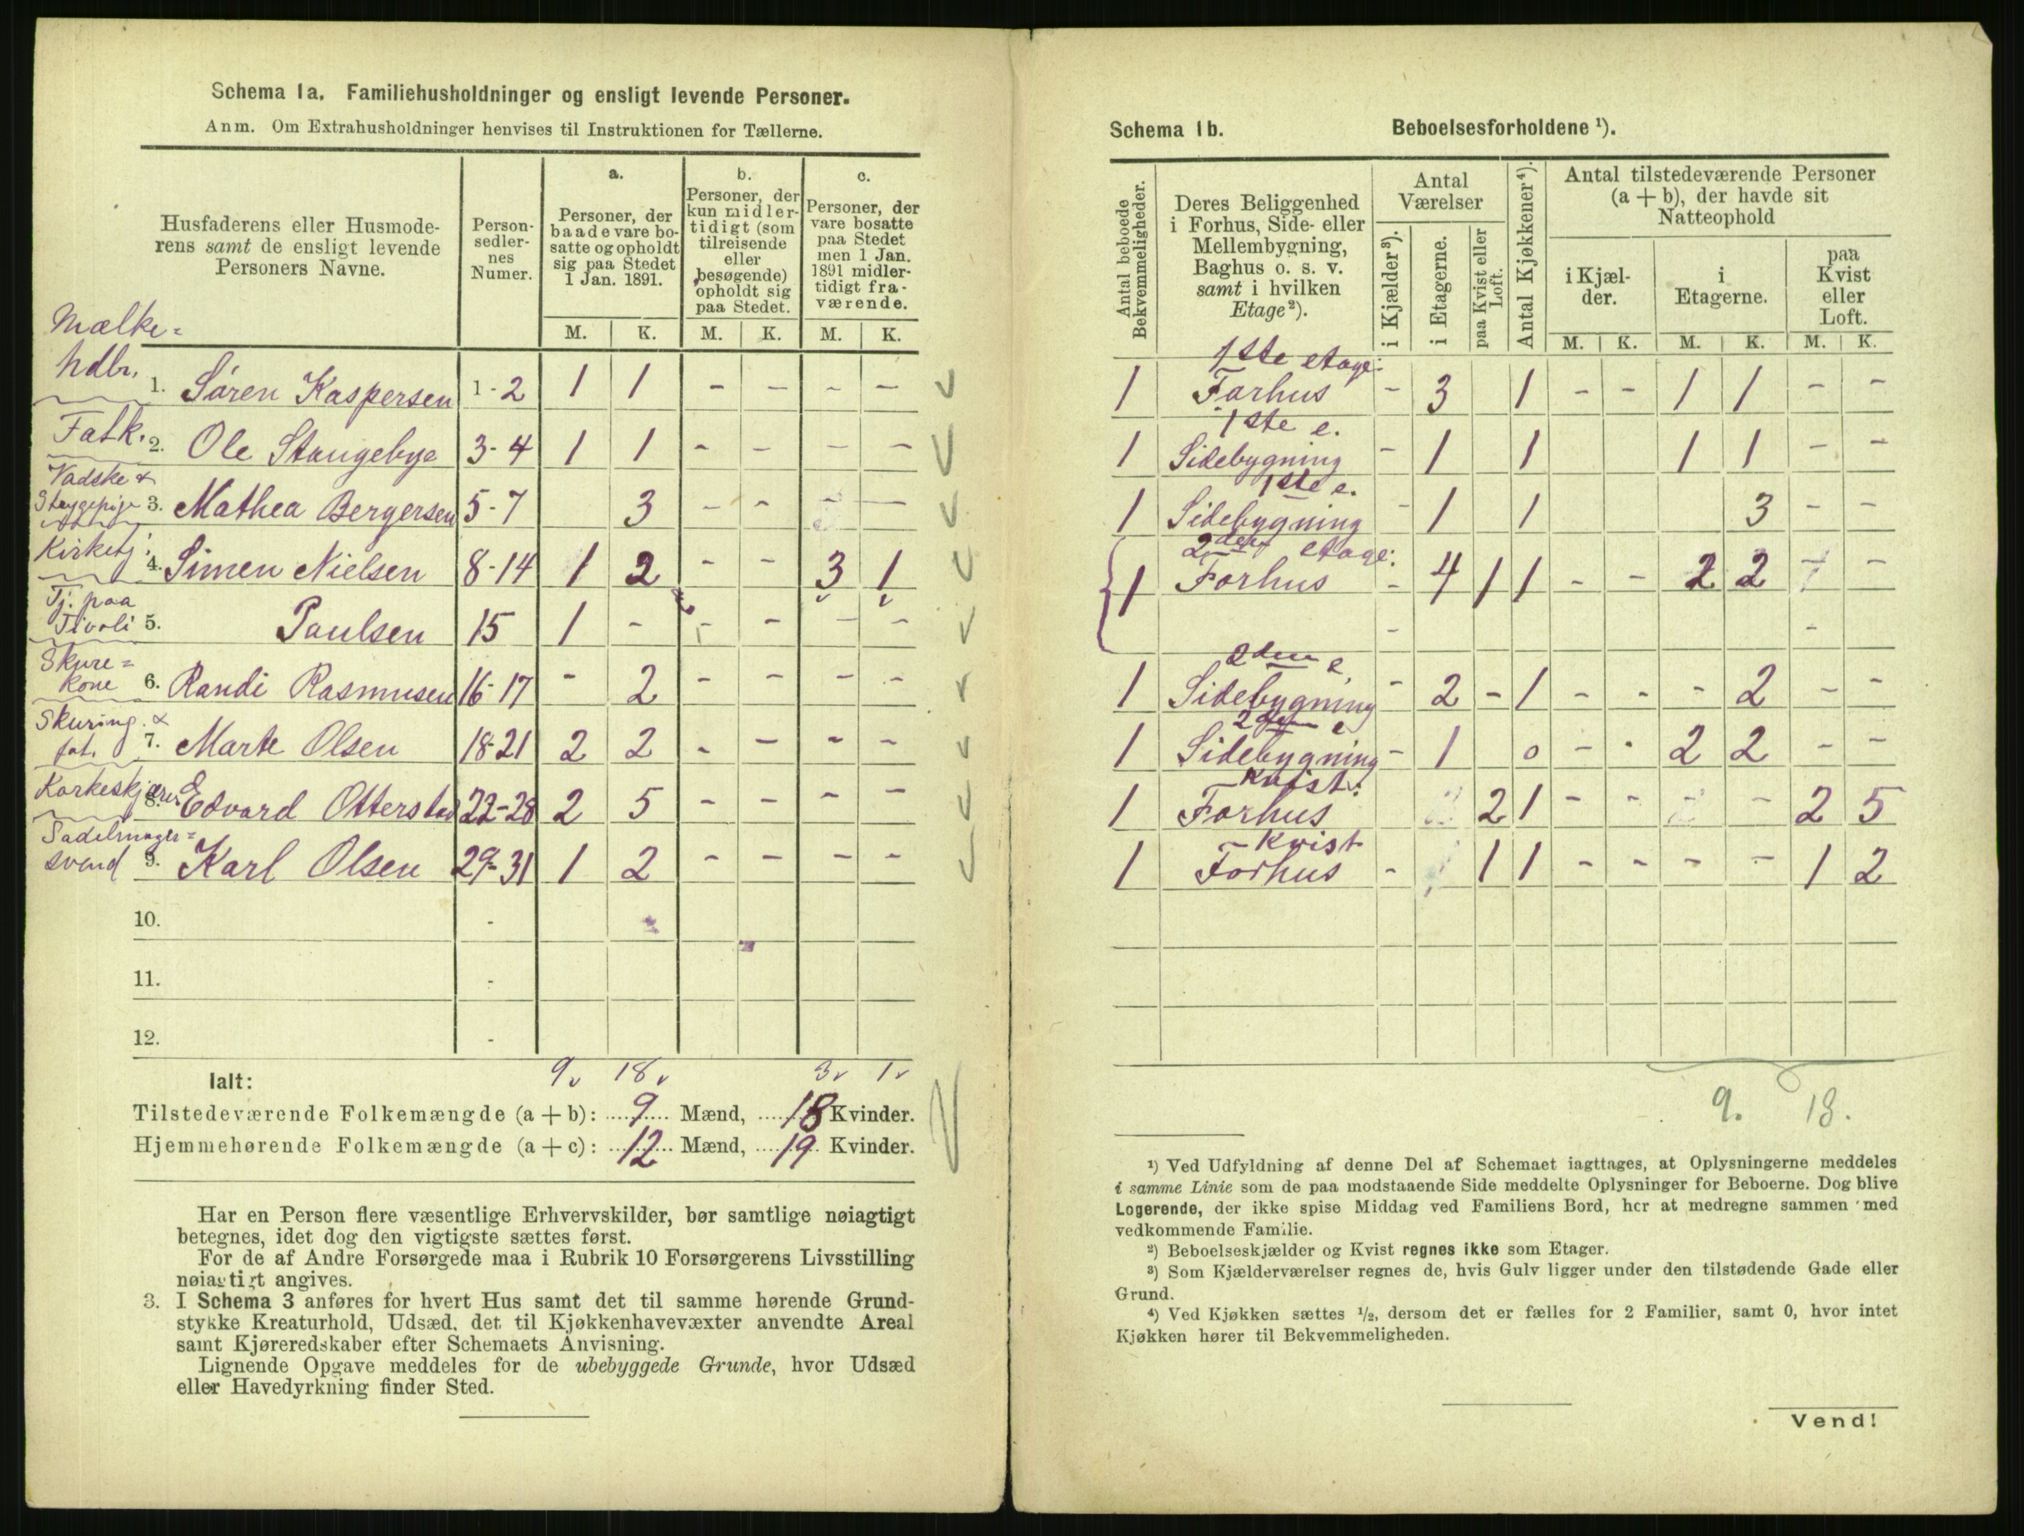 Schema 1a. Familiehusholdninger og ensligt levende Personer.
Anm. Om Extrahusholdninger henvises til Instruktionen for Tællerne.
Husfaderens eller Husmode-
rens samt de ensligt levende
Personers Navne.
Person-
sedler-
nes
Numer.
a.
Personer, der
baade vare bo-
satte og opholdt
sig paa Stedet
1 Jan. 1891.
b.
Personer, der
kun midler-
tidigt (som
tilreisende
eller
besøgende)
opholdt sig
paa Stedet.
c.
Personer, der
vare bosatte
paa Stedet
men 1 Jan.
1891 midler-
tidigt fra-
værende.
M. K. M. K. M. K.
Mælke=
hdlr. 1. Søren Kaspersen 1-2 1 1 - - - -
Fatk. 2. Ole Stangebye 3-4 1 1 - - - -
Vadske &
Strygepige 3. Mathea Bergersen 5-7 3 - - - -
Kirketj. 4. Simen Nielsen 8-14 1 2 - - 3 1
Tj. paa
Tivoli 5. Paulsen 15 1 - - - - -
Skure=
kone 6. Randi Rasmusen 16-17 - 2 - - - -
Skuring &
fat. 7. Marte Olsen 18-21 2 2 - - - -
Korkeskjærer 8. Edvard Otterstad 22-28 2 5 - - - -
Sadelmager=
svend 9. Karl Olsen 29-31 1 2 - - - -
10. -
11. -
12. -
Ialt: 9 18 3 1
Tilstedeværende Folkemængde (a + b): 9 Mænd, 18 Kvinder.
Hjemmehørende Folkemængde (a + c): 12 Mænd, 19 Kvinder.
Har en Person flere væsentlige Erhvervskilder, bør samtlige nøiagtigt
betegnes, idet dog den vigtigste sættes først.
For de af Andre Forsørgede maa i Rubrik 10 Forsørgerens Livsstilling
nøiagtigt angives.
3. I Schema 3 anføres for hvert Hus samt det til samme hørende Grund-
stykke Kreaturhold, Udsæd, det til Kjøkkenhavevæxter anvendte Areal
samt Kjøreredskaber efter Schemaets Anvisning.
Lignende Opgave meddeles for de ubebyggede Grunde, hvor Udsæd
eller Havedyrkning finder Sted.
Schema 1b. Beboelsesforholdene ¹).
Antal beboede
Bekvemmeligheder.
Deres Beliggenhed
i Forhus, Side- eller
Mellembygning,
Baghus o. s. v.
samt i hvilken
Etage²).
Antal
Værelser
i Kjælder³).
i Etagerne.
paa Kvist eller
Loft.
Antal Kjøkkener⁴).
Antal tilstedeværende Personer
(a + b), der havde sit
Natteophold
i Kjæl-
der.
i
Etagerne.
paa
Kvist
eller
Loft.
M. K. M. K. M. K.
1ste etage:
1 Forhus - 3 1 - - 1 1 - -
1ste e.
1 Sidebygning - 1 1 1 1 - -
1ste e.
1 Sidebygning - 1 1 3 - -
2den etage:
1 Forhus - 4 1 1 - - 2 2 -
- -
2den e
1 Sidebygning - 2 - 1 - - - 2 - -
2den e
1 Sidebygning - 1 0 - - 2 2 - -
Kvist:
1 Forhus 2 1 - - - 2 5
Kvist
1 Forhus - 1 1 - - - - 1 2
9. 18.
¹) Ved Udfyldning af denne Del af Schemaet iagttages, at Oplysningerne meddeles
i samme Linie som de paa modstaaende Side meddelte Oplysninger for Beboerne. Dog blive
Logerende, der ikke spise Middag ved Familiens Bord, her at medregne sammen med
vedkommende Familie.
²) Beboelseskjælder og Kvist regnes ikke som Etager.
³) Som Kjælderværelser regnes de, hvis Gulv ligger under den tilstødende Gade eller
Grund.
⁴) Ved Kjøkken sættes ½, dersom det er fælles for 2 Familier, samt 0, hvor intet
Kjøkken hører til Bekvemmeligheden.
Vend!